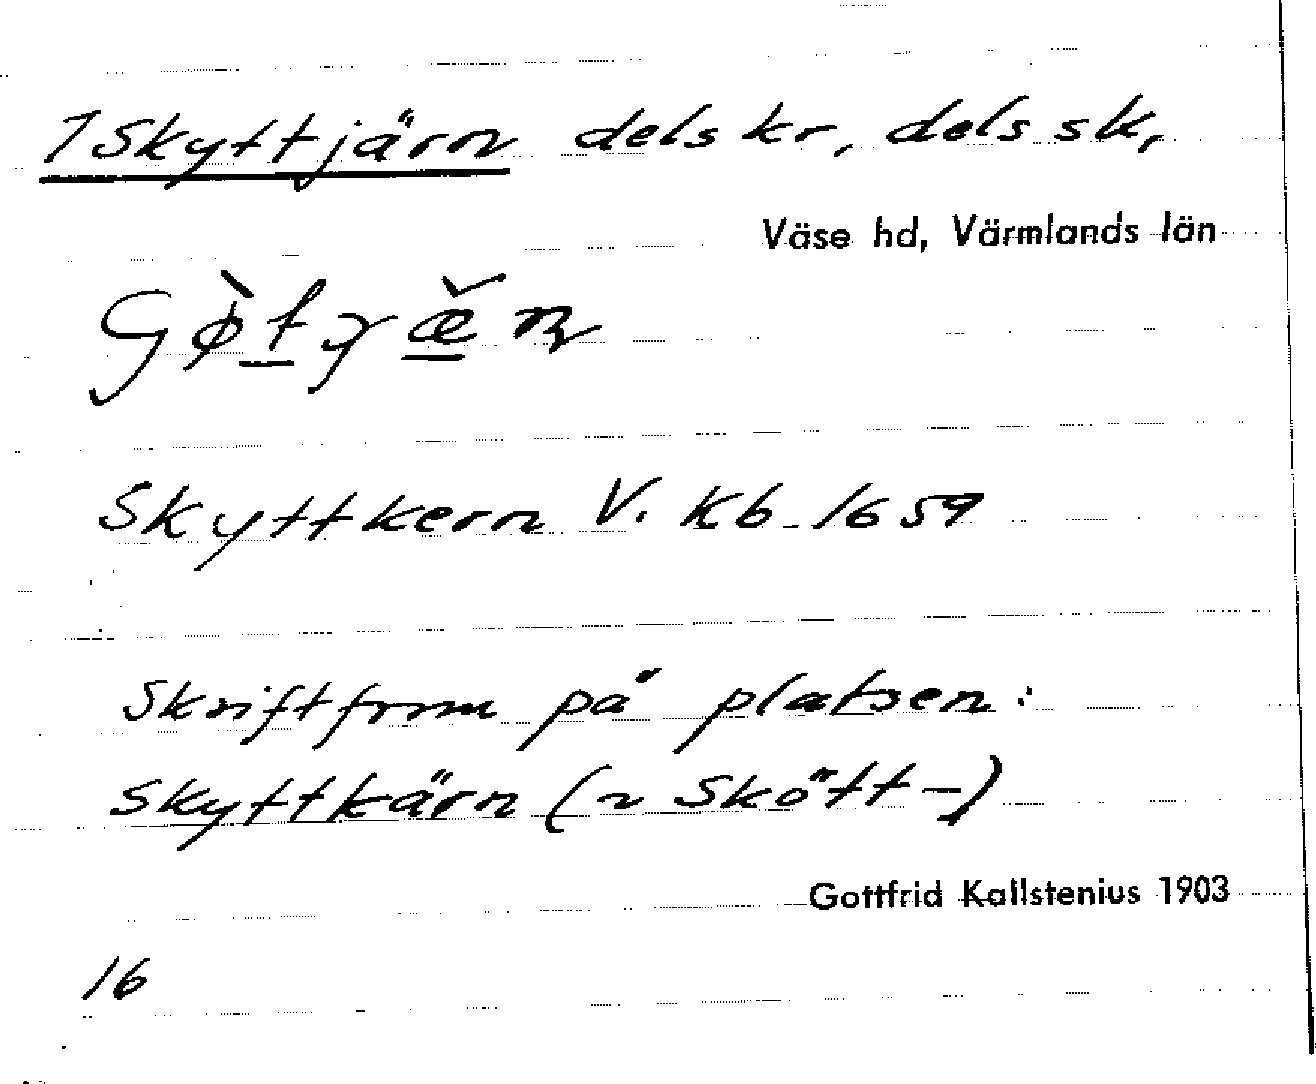 1 Skyttjärn dels kr, dels sk,
Väse hd, Värmlands län
Skyttkern V. Kb 1659
Skriftform på platsen:
Skyttkärn (~ Skött-)
Gottfrid Kallstenius 1903
16